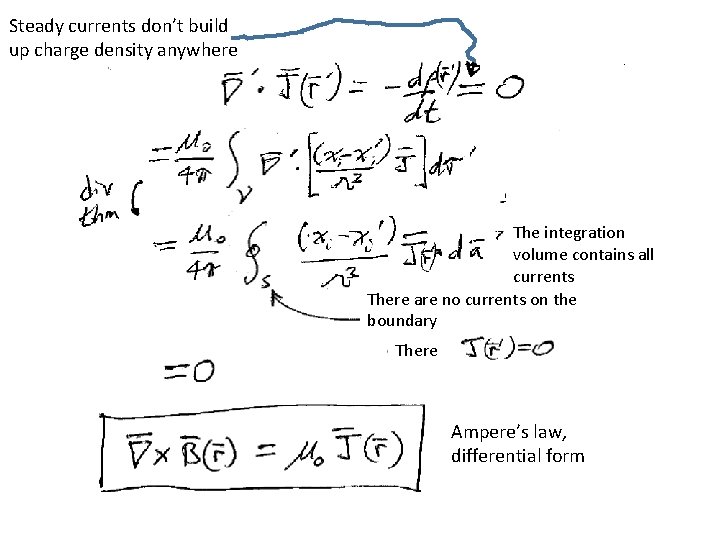 Steady currents don't build
up charge density anywhere
∇̄'·J̄(r̄') = -dρ(r̄')/dt = 0
= -μ₀/4π ∫_V ∇̄'·[(xᵢ-xᵢ')/r² J̄]dτ'
div
thm
= μ₀/4π ∮_S (xᵢ-xᵢ')/r² J̄(r̄')·dā
The integration
volume contains all
currents
There are no currents on the
boundary
There J̄(r̄')=0
=0
∇̄×B̄(r̄) = μ₀ J̄(r̄)
Ampere's law,
differential form